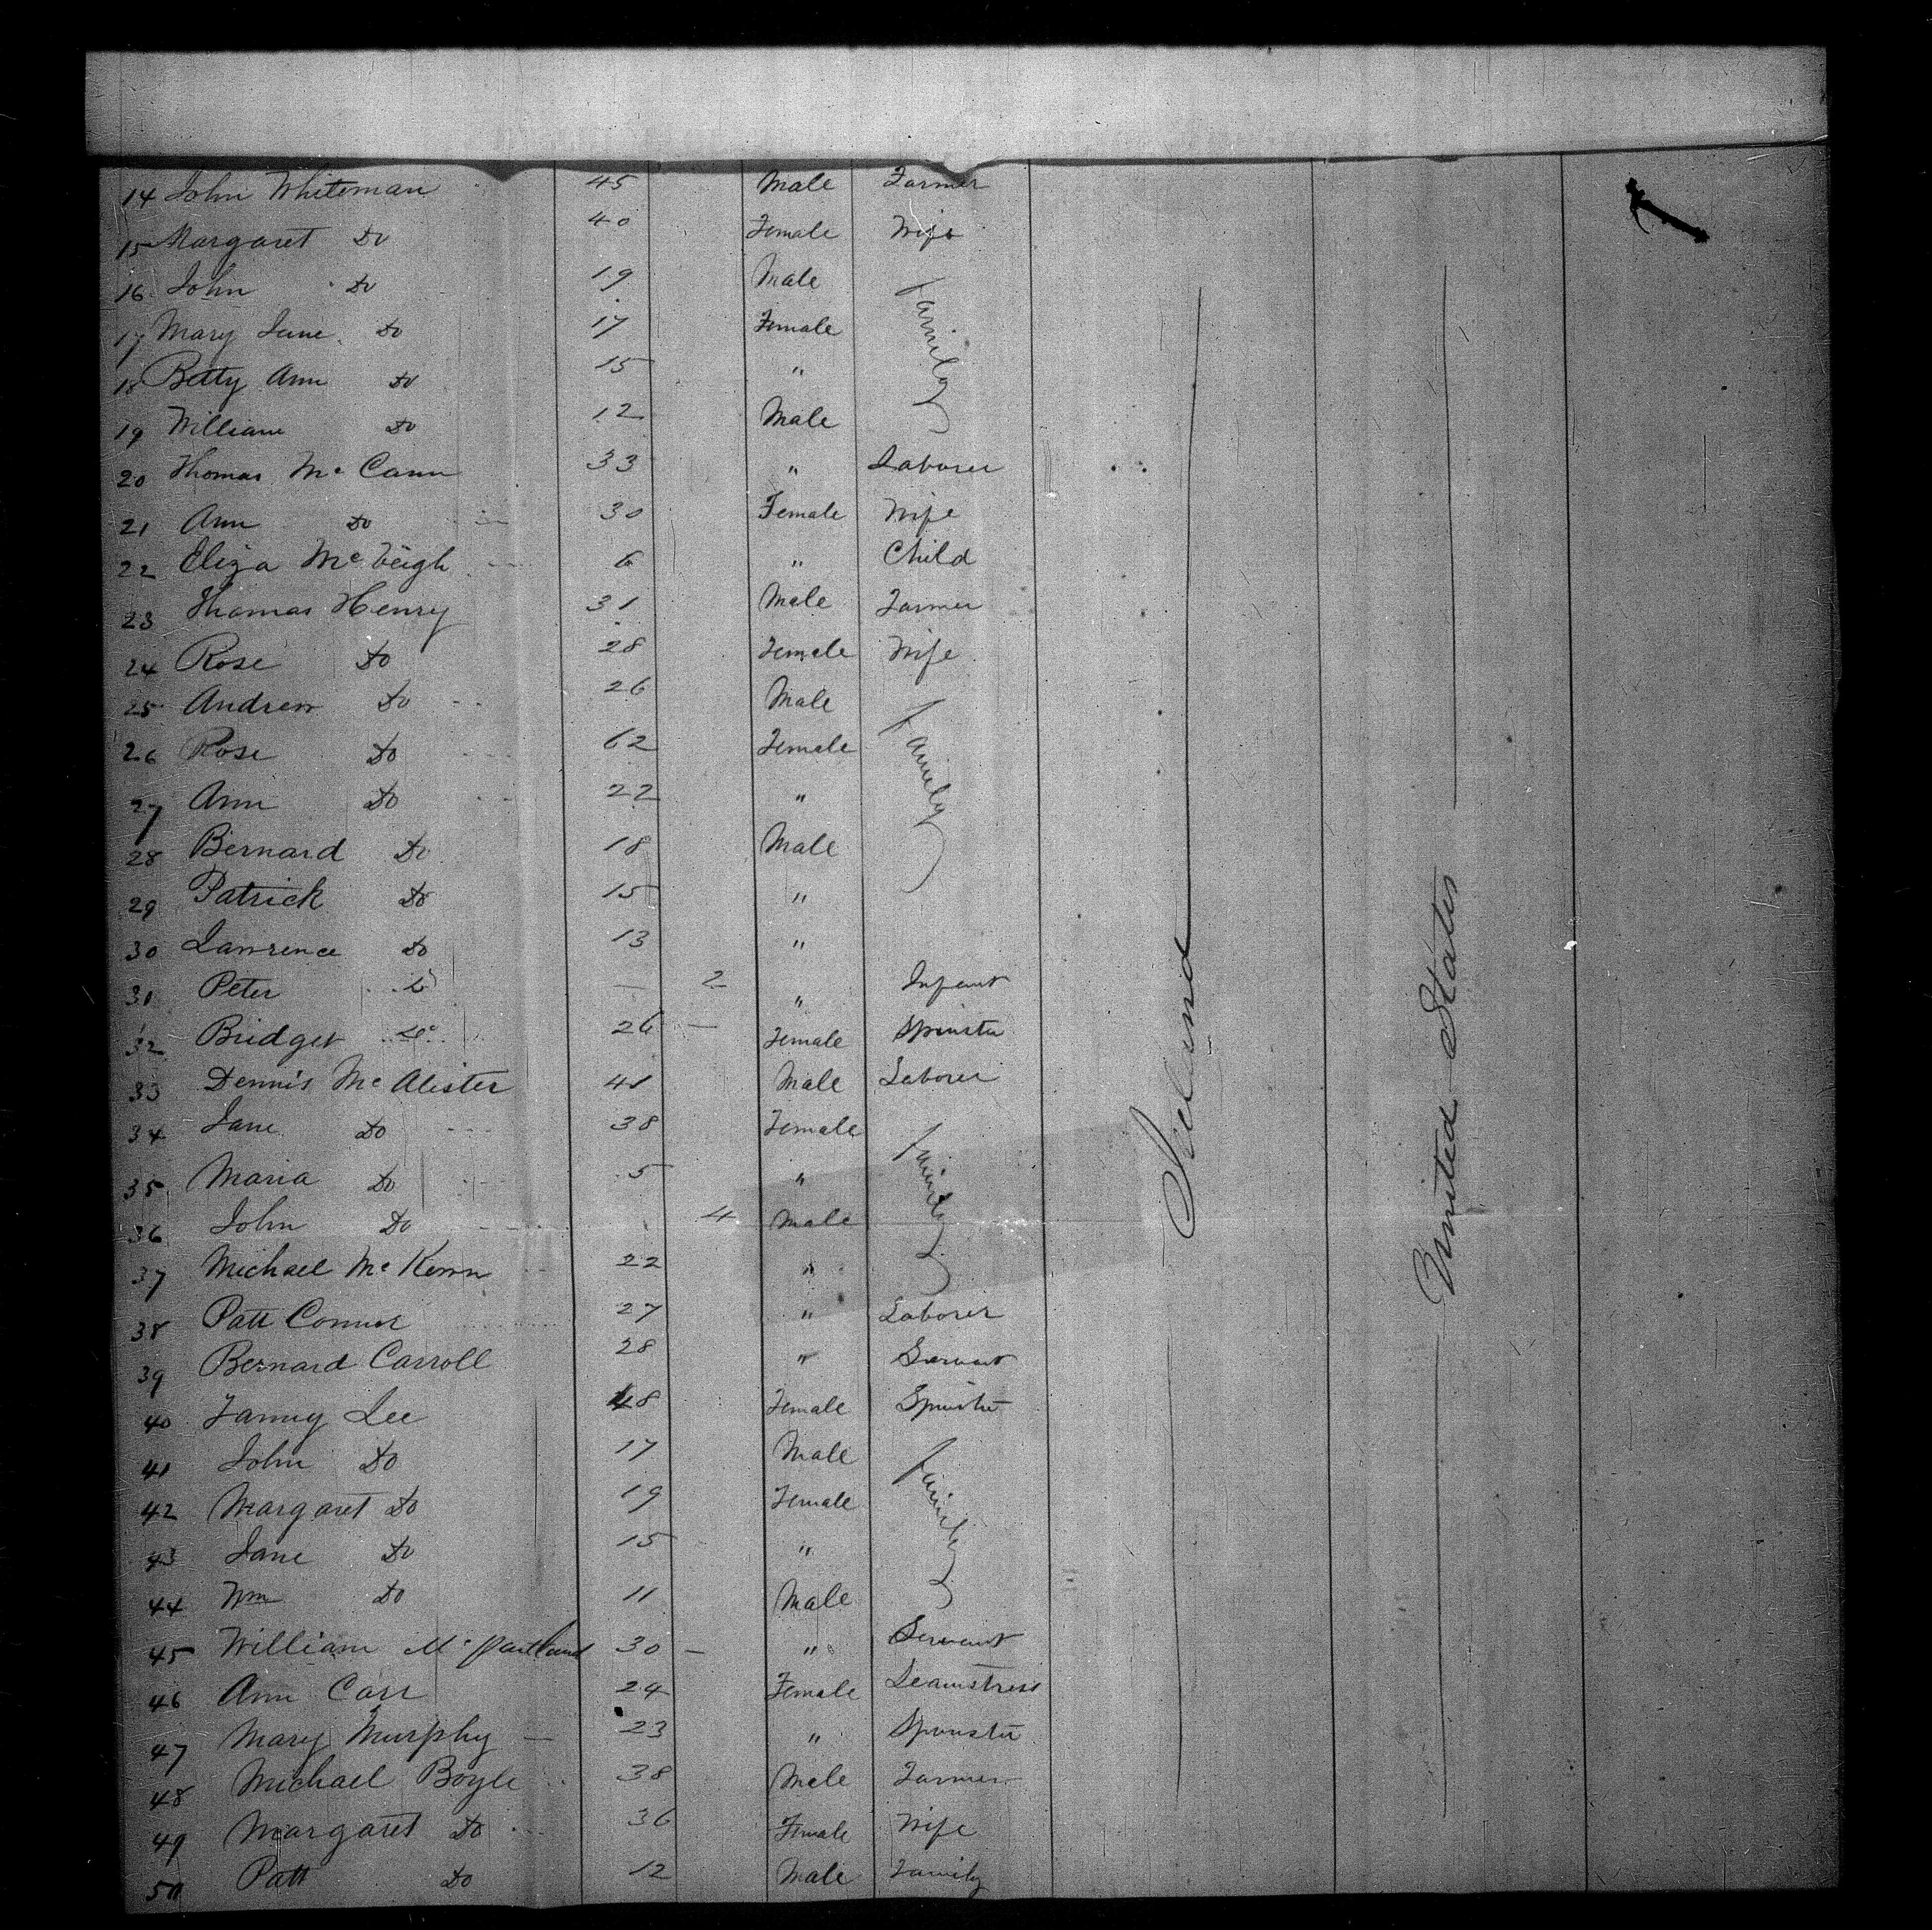 14 John Whiteman 45 Male Farmer
15 Margaret Do 40 Female Wife
16 John Do 19 Male
17 Mary Jane Do 17 Female
18 Betty Ann Do 15 "
19 William Do 12 Male
Family
20 Thomas Mc Cann 33 " Laborer
21 Ann Do 30 Female Wife
22 Eliza Mc Veigh 6 " Child
23 Thomas Henry 31 Male Farmer
24 Rose Do 28 Female Wife
25 Andrew Do 26 Male
26 Rose Do 62 Female
27 Ann Do 22 "
28 Bernard Do 18 Male
Family
29 Patrick Do 15 "
30 Lawrence Do 13 "
31 Peter Do — 2 " Infant
32 Bridget Do 26 — Female Spinster
33 Dennis Mc Alister 41 Male Laborer
34 Jane Do 38 Female
35 Maria Do 5 "
36 John Do 4 Male
Family
37 Michael Mc 22 "
38 Patt Connor 27 " Laborer
39 Bernard Carroll 28 " Servant
40 Fanny Lee 48 Female Spinster
41 John Do 17 Male
42 Margaret Do 19 Female
43 Jane Do 15 "
44 Wm Do 11 Male
Family
45 William Mc Partland 30 — " Servant
46 Ann Carr 24 Female Seamstress
47 Mary Murphy — 23 " Spinster
48 Michael Boyle 38 Male Farmer
49 Margaret Do 36 Female Wife
50 Patt Do 12 Male Family
Ireland
United States